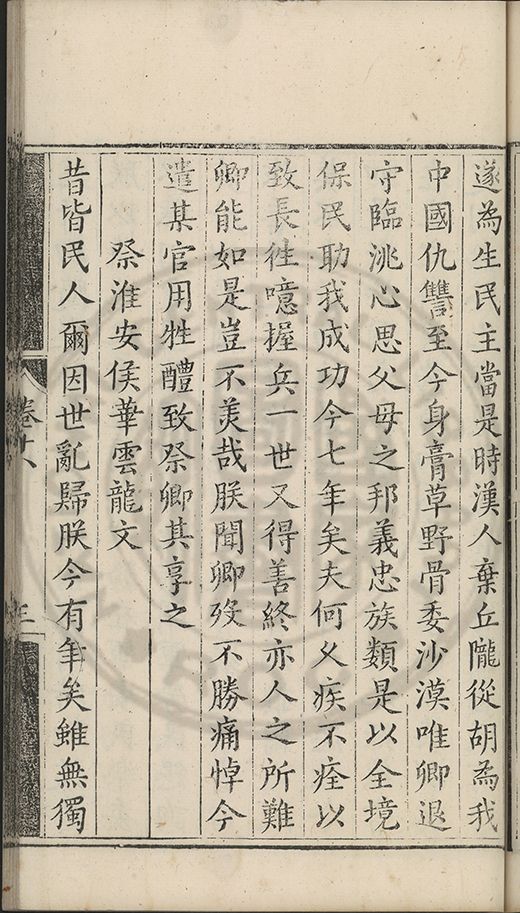 遂為生民主當是時漢人棄丘隴從胡為我
中國仇讐至今身膏草野骨委沙漠唯卿退
守臨洮心思父母之邦義忠族類是以全境
保民助我成功今七年矣夫何父疾不痊以
致長徃噫握兵一世又得善終亦人之所難
卿能如是豈不羙哉朕聞卿歿不勝痛悼今
遣某官用牲醴致祭卿其享之
祭淮安侯華雲龍文
昔皆民人爾因世亂歸朕今有年矣雖無獨
卷十八
三